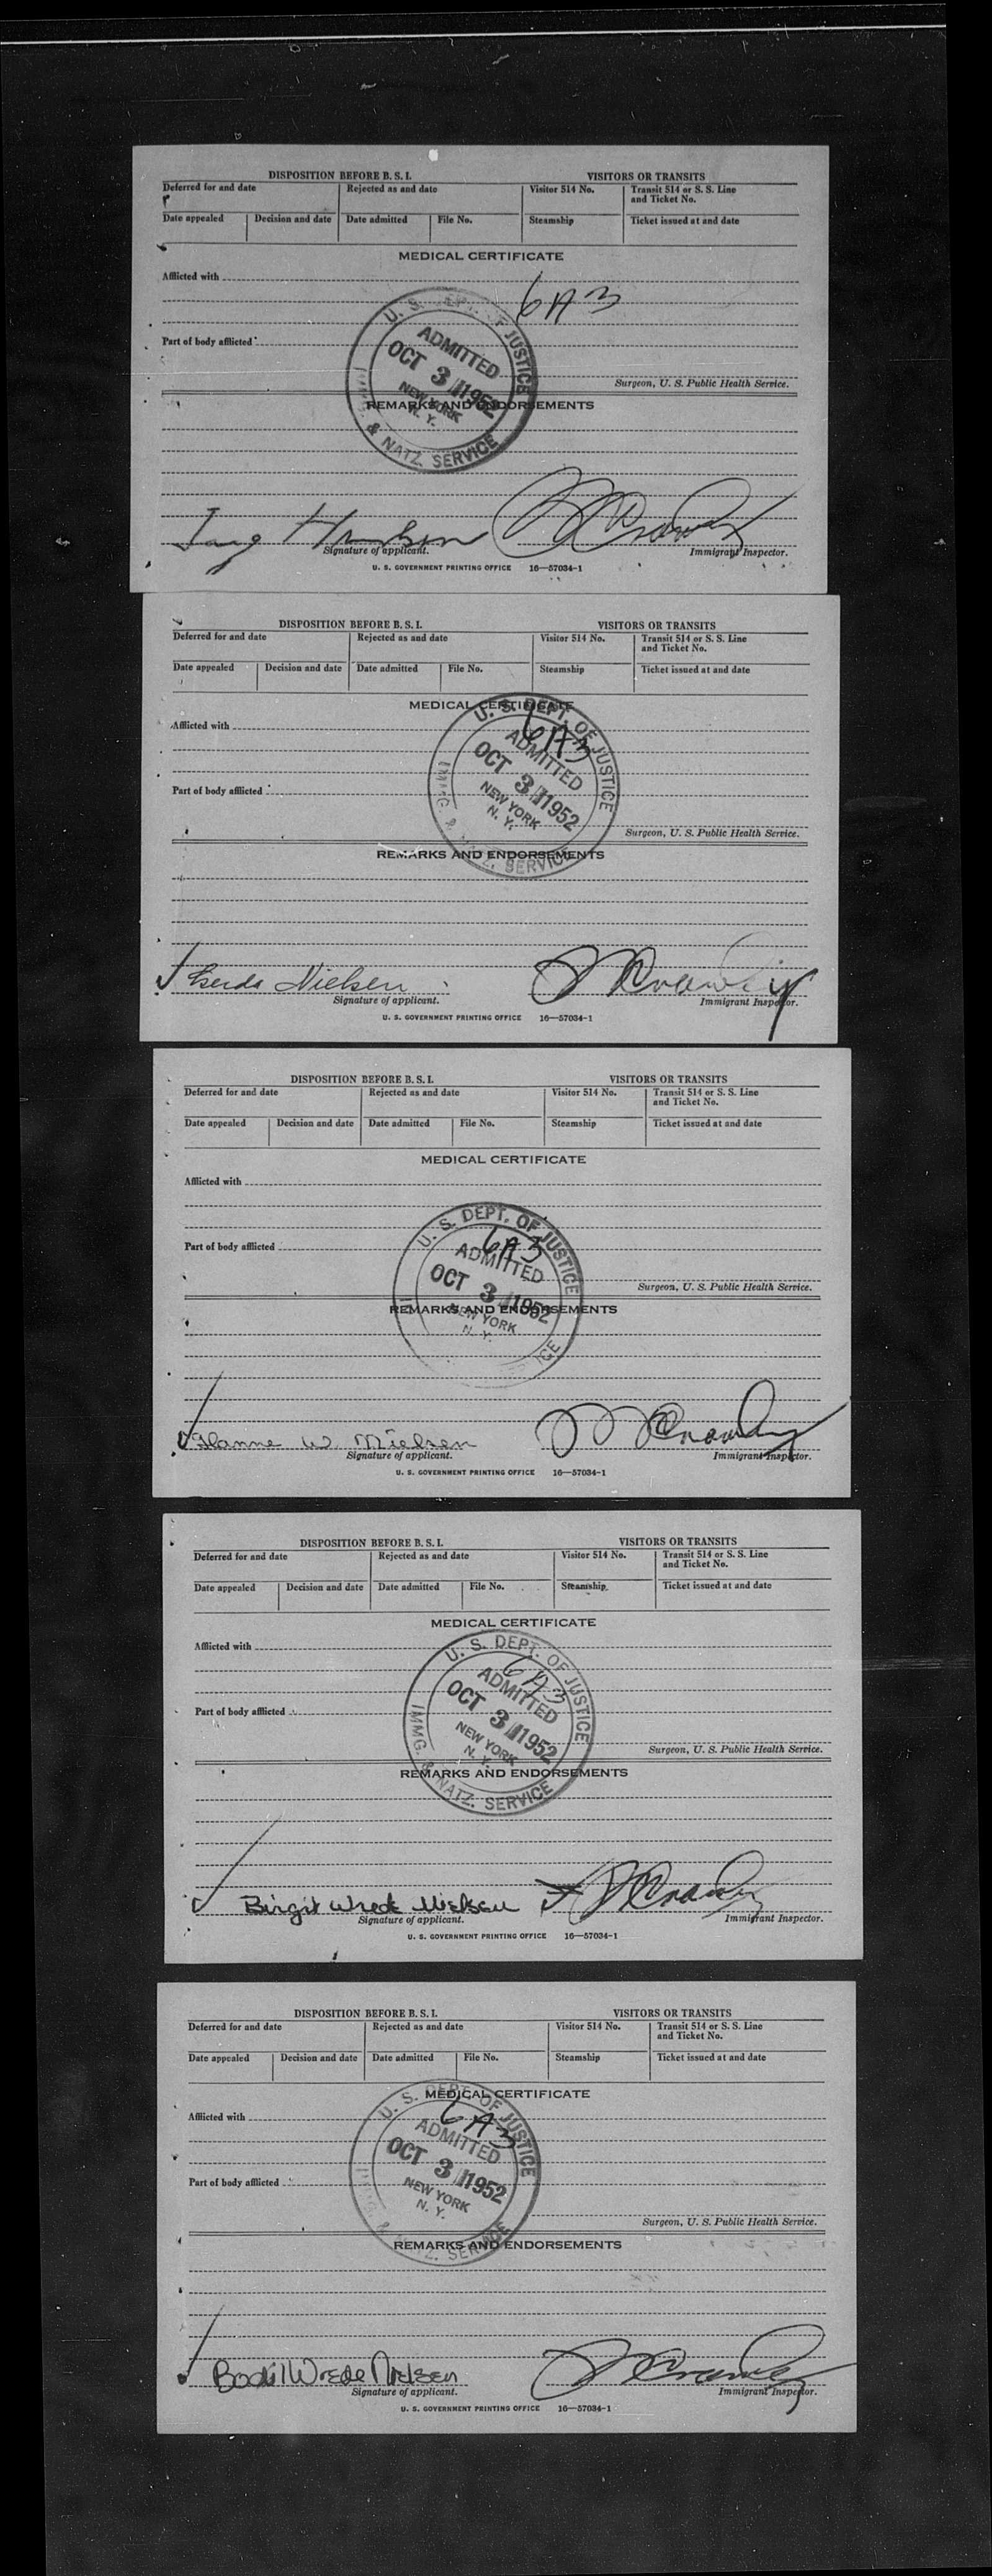 DISPOSITION BEFORE B. S. I. VISITORS OR TRANSITS
Deferred for and date Rejected as and date Visitor 514 No. Transit 514 or S. S. Line
and Ticket No.
Date appealed Decision and date Date admitted File No. Steamship Ticket issued at and date
MEDICAL CERTIFICATE
Afflicted with
6A3
U. S. DEPT. OF JUSTICE
ADMITTED
OCT 3 1952
NEW YORK
N. Y.
& NATZ. SERVICE
Part of body afflicted
Surgeon, U. S. Public Health Service.
REMARKS AND ENDORSEMENTS
Signature of applicant. Immigrant Inspector.
U. S. GOVERNMENT PRINTING OFFICE 16—57034-1
DISPOSITION BEFORE B. S. I. VISITORS OR TRANSITS
Deferred for and date Rejected as and date Visitor 514 No. Transit 514 or S. S. Line
and Ticket No.
Date appealed Decision and date Date admitted File No. Steamship Ticket issued at and date
MEDICAL CERTIFICATE
Afflicted with
6A3
U. S. DEPT. OF JUSTICE
ADMITTED
OCT 3 1952
NEW YORK
N. Y.
IMMG. & NATZ. SERVICE
Part of body afflicted
Surgeon, U. S. Public Health Service.
REMARKS AND ENDORSEMENTS
Gerda Nielsen
Signature of applicant. Immigrant Inspector.
U. S. GOVERNMENT PRINTING OFFICE 16—57034-1
DISPOSITION BEFORE B. S. I. VISITORS OR TRANSITS
Deferred for and date Rejected as and date Visitor 514 No. Transit 514 or S. S. Line
and Ticket No.
Date appealed Decision and date Date admitted File No. Steamship Ticket issued at and date
MEDICAL CERTIFICATE
Afflicted with
U. S. DEPT. OF JUSTICE
6A3
ADMITTED
OCT 3 1952
NEW YORK
N. Y.
Part of body afflicted
Surgeon, U. S. Public Health Service.
REMARKS AND ENDORSEMENTS
Hanne W. Nielsen
Signature of applicant. Immigrant Inspector.
U. S. GOVERNMENT PRINTING OFFICE 16—57034-1
DISPOSITION BEFORE B. S. I. VISITORS OR TRANSITS
Deferred for and date Rejected as and date Visitor 514 No. Transit 514 or S. S. Line
and Ticket No.
Date appealed Decision and date Date admitted File No. Steamship Ticket issued at and date
MEDICAL CERTIFICATE
Afflicted with
U. S. DEPT. OF JUSTICE
6A3
ADMITTED
OCT 3 1952
NEW YORK
N. Y.
IMMG. & NATZ. SERVICE
Part of body afflicted
Surgeon, U. S. Public Health Service.
REMARKS AND ENDORSEMENTS
Birgit Wrede Nielsen
Signature of applicant. Immigrant Inspector.
U. S. GOVERNMENT PRINTING OFFICE 16—57034-1
DISPOSITION BEFORE B. S. I. VISITORS OR TRANSITS
Deferred for and date Rejected as and date Visitor 514 No. Transit 514 or S. S. Line
and Ticket No.
Date appealed Decision and date Date admitted File No. Steamship Ticket issued at and date
MEDICAL CERTIFICATE
Afflicted with
U. S. DEPT. OF JUSTICE
6A3
ADMITTED
OCT 3 1952
NEW YORK
N. Y.
IMMG. & NATZ. SERVICE
Part of body afflicted
Surgeon, U. S. Public Health Service.
REMARKS AND ENDORSEMENTS
Bodil Wrede Nielsen
Signature of applicant. Immigrant Inspector.
U. S. GOVERNMENT PRINTING OFFICE 16—57034-1